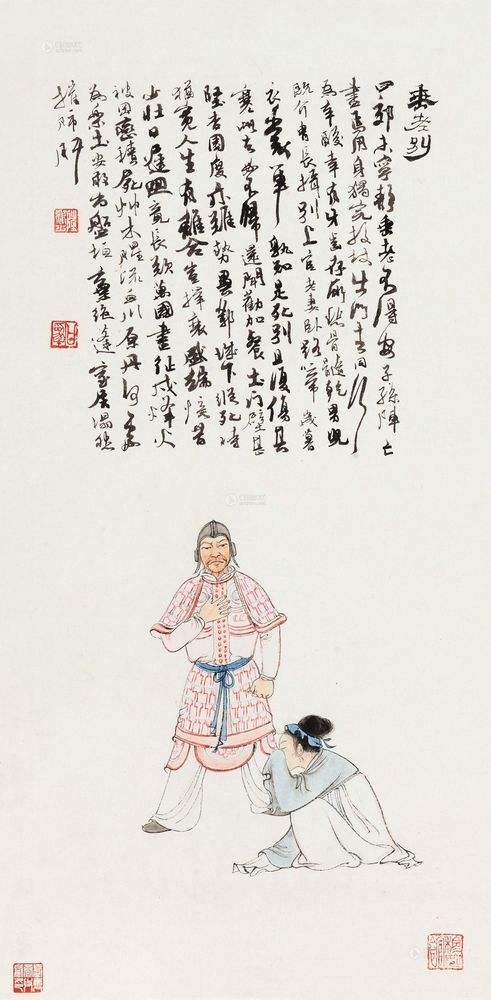 垂老別
四郊未寧靜垂老不得安子孫陣亡
盡焉用身獨完投杖出門去同行
為辛酸幸有牙齒存所悲骨髓乾男兒
既介胄長揖別上官老妻臥路啼歲暮
衣裳單孰知是死別且復傷其
寒此去必不歸還聞勸加餐土門壁甚
堅杏園度亦難勢異鄴城下縱死時
猶寬人生有離合豈擇衰盛端憶昔
少壯日遲迴竟長歎萬國盡征戍烽火
被岡巒積屍艸木腥流血川原丹何鄉
為樂土安敢尚盤桓棄絕蓬室居塌然
摧肺肝